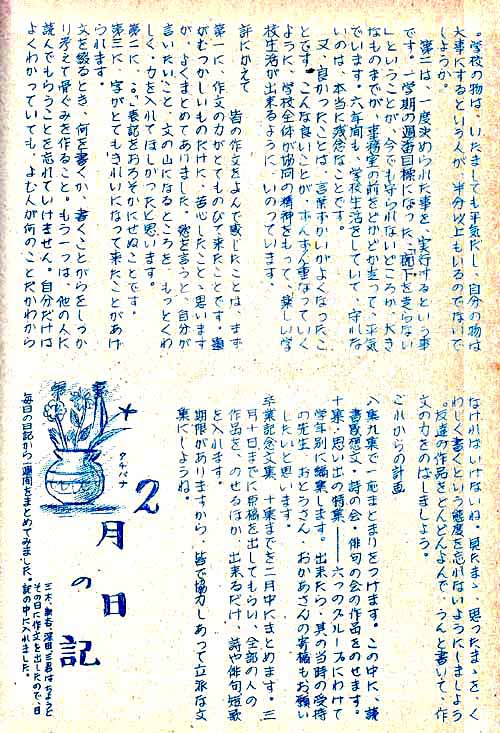 。学校の物は、いたましても平気だし、自分の物は
大事にするという人が、半分以上もいるのでないで
しょうか。
第二は、一度決められた事を、実行するという事
です。一学期の週番目標になった「廊下を走らない
」ということが、今でも守られないどころか、大き
なものまでが、事務室の前をどかどか走って、平気
でいます。六年間も、学校生活をしていて、守れな
いのは、本当に残念なことです。
又、良かったことは、言葉ずかいがよくなったこ
とです。こんな良いことが、ずんずん重なっていく
ように、学校全体が協同の精神をもって、楽しい学
校生活が出来るように、いのっています。
評にかえて
皆の作文をよんで感じたことは、まず
第一に、作文の力がとてものびて来たことです。
がむつかしいものだけに、苦心したことゝ思います
が、よくまとめてありました。慾を言うと、自分が
言いたいこと、文の山になるところを、もっとくわ
しく、力を入れてほしかったと思います。
第二に、。、表記をおろそかにせぬことです。
第三に、字がとてもきれいになって来たことがあげ
られます。
文を綴るとき、何を書くか、書くことがらをしっか
り考えて骨ぐみを作ること。もう一つは、他の人に
読んでもらうことを忘れていけません。自分だけは
よくわかっていても、よむ人が何のことだかわから
なければいけないね。見たまゝ、思ったまゝを、く
わしく書くという態度を忘れないようにしましよう
。友達の作品をどんどんよんで、うんと書いて、作
文の力をのばしましよう。
これからの計画
八集九集で一応まとまりをつけます。この中に、読
書感想文・詩の会・俳句の会の作品をのせます。
十集・思い出の特集――六つのグループにわけて
学年別に編集します。出来たら、其の当時の受持
の先生、おとうさん、おかあさんの寄稿もお願い
したいと思います。
卒業記念文集、十集までを二月中にまとめます。三
月十日までに原稿を出してもらい、全部の人の
作品を、のせるほか、出来るだけ、詩や俳句短歌
を入れます。
期限がありますから、皆で協力しあって立派な文
集にしようね。
タチバナ
2月の日記
毎日の日記から一週間をまとめてみました。
その日に作文を出したので、日
記の中に入れました。